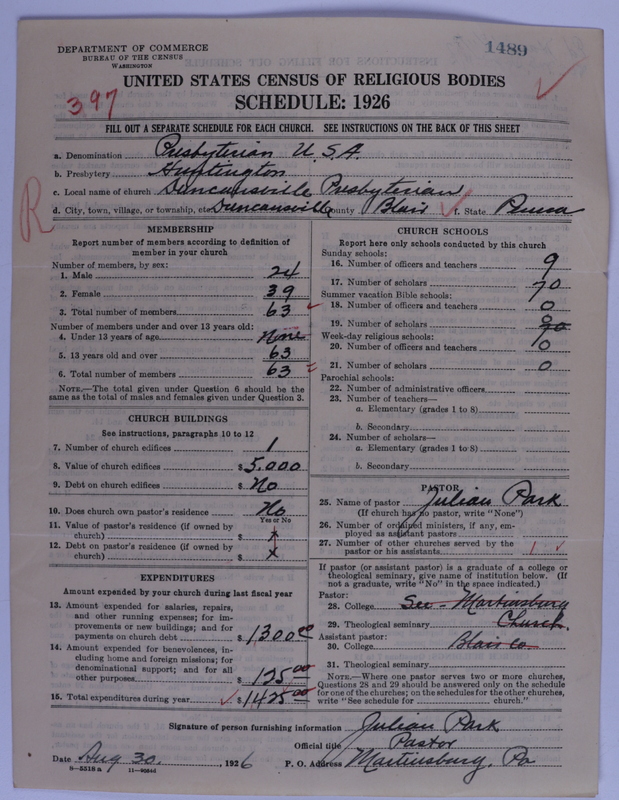 DEPARTMENT OF COMMERCE
BUREAU OF THE CENSUS
WASHINGTON
1489
UNITED STATES CENSUS OF RELIGIOUS BODIES
397
SCHEDULE: 1926
FILL OUT A SEPARATE SCHEDULE FOR EACH CHURCH. SEE INSTRUCTIONS ON THE BACK OF THIS SHEET
a. Denomination Presbyterian U.S.A.
b. Presbytery Huntington
c. Local name of church Duncansville Presbyterian
d. City, town, village, or township, etc. Duncansville County Blair f. State Penna
R
MEMBERSHIP
Report number of members according to definition of
member in your church
Number of members, by sex:
1. Male 24
2. Female 39
3. Total number of members 63
Number of members under and over 13 years old:
4. Under 13 years of age None
5. 13 years old and over 63
6. Total number of members 63
NOTE.—The total given under Question 6 should be
same as the total of males and females given under Question 3.
CHURCH BUILDINGS
See instructions, paragraphs 10 to 12
7. Number of church edifices 1
8. Value of church edifices $5,000
9. Debt on church edifices $ No
10. Does church own pastor's residence No
Yes or No
11. Value of pastor's residence (if owned by
church) $ x
12. Debt on pastor's residence (if owned by
church) $ x
EXPENDITURES
Amount expended by your church during last fiscal year
13. Amount expended for salaries, repairs,
and other running expenses; for im-
provements or new buildings; and for
payments on church debt $1300 00
14. Amount expended for benevolences, in-
cluding home and foreign missions; for
denominational support; and for all
other purposes $125 00
15. Total expenditures during year $1425 00
CHURCH SCHOOLS
Report here only schools conducted by this church
Sunday schools:
16. Number of officers and teachers 9
17. Number of scholars 70
Summer vacation Bible schools:
18. Number of officers and teachers 0
19. Number of scholars 0
Week-day religious schools:
20. Number of officers and teachers 0
21. Number of scholars 0
Parochial schools:
22. Number of administrative officers
23. Number of teachers—
a. Elementary (grades 1 to 8)
b. Secondary
24. Number of scholars—
a. Elementary (grades 1 to 8)
b. Secondary
PASTOR
25. Name of pastor Julian Park
(If church has no pastor, write "None")
26. Number of ordained ministers, if any, em-
ployed as assistant pastors
27. Number of other churches served by the
pastor or his assistants 1
If pastor (or assistant pastor) is a graduate of a college or
theological seminary, give name of institution below. (If
not a graduate, write "No" in the space indicated.)
Pastor:
28. College See - Martinsburg
29. Theological seminary Church.
Assistant pastor:
30. College Blair Co
31. Theological seminary
NOTE.—Where one pastor serves two or more churches,
Questions 28 and 29 should be answered only on the schedule
for one of the churches; on the schedules for the other churches,
write "See schedule for church."
Signature of person furnishing information Julian Park
Official title Pastor
Date Aug 30, 1926 P. O. Address Martinsburg, Pa
8—5518 a